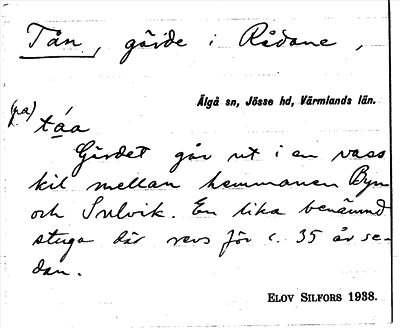 Tån, gärde i Rådane,
Älgå sn, Jösse hd, Värmlands län.
(pa) táa
Gärdet går ut i en vass
kil mellan hemmanen Byn
och Sulvik. En lika benämnd
stuga där revs för c. 35 år se-
dan.
ELOV SILFORS 1938.